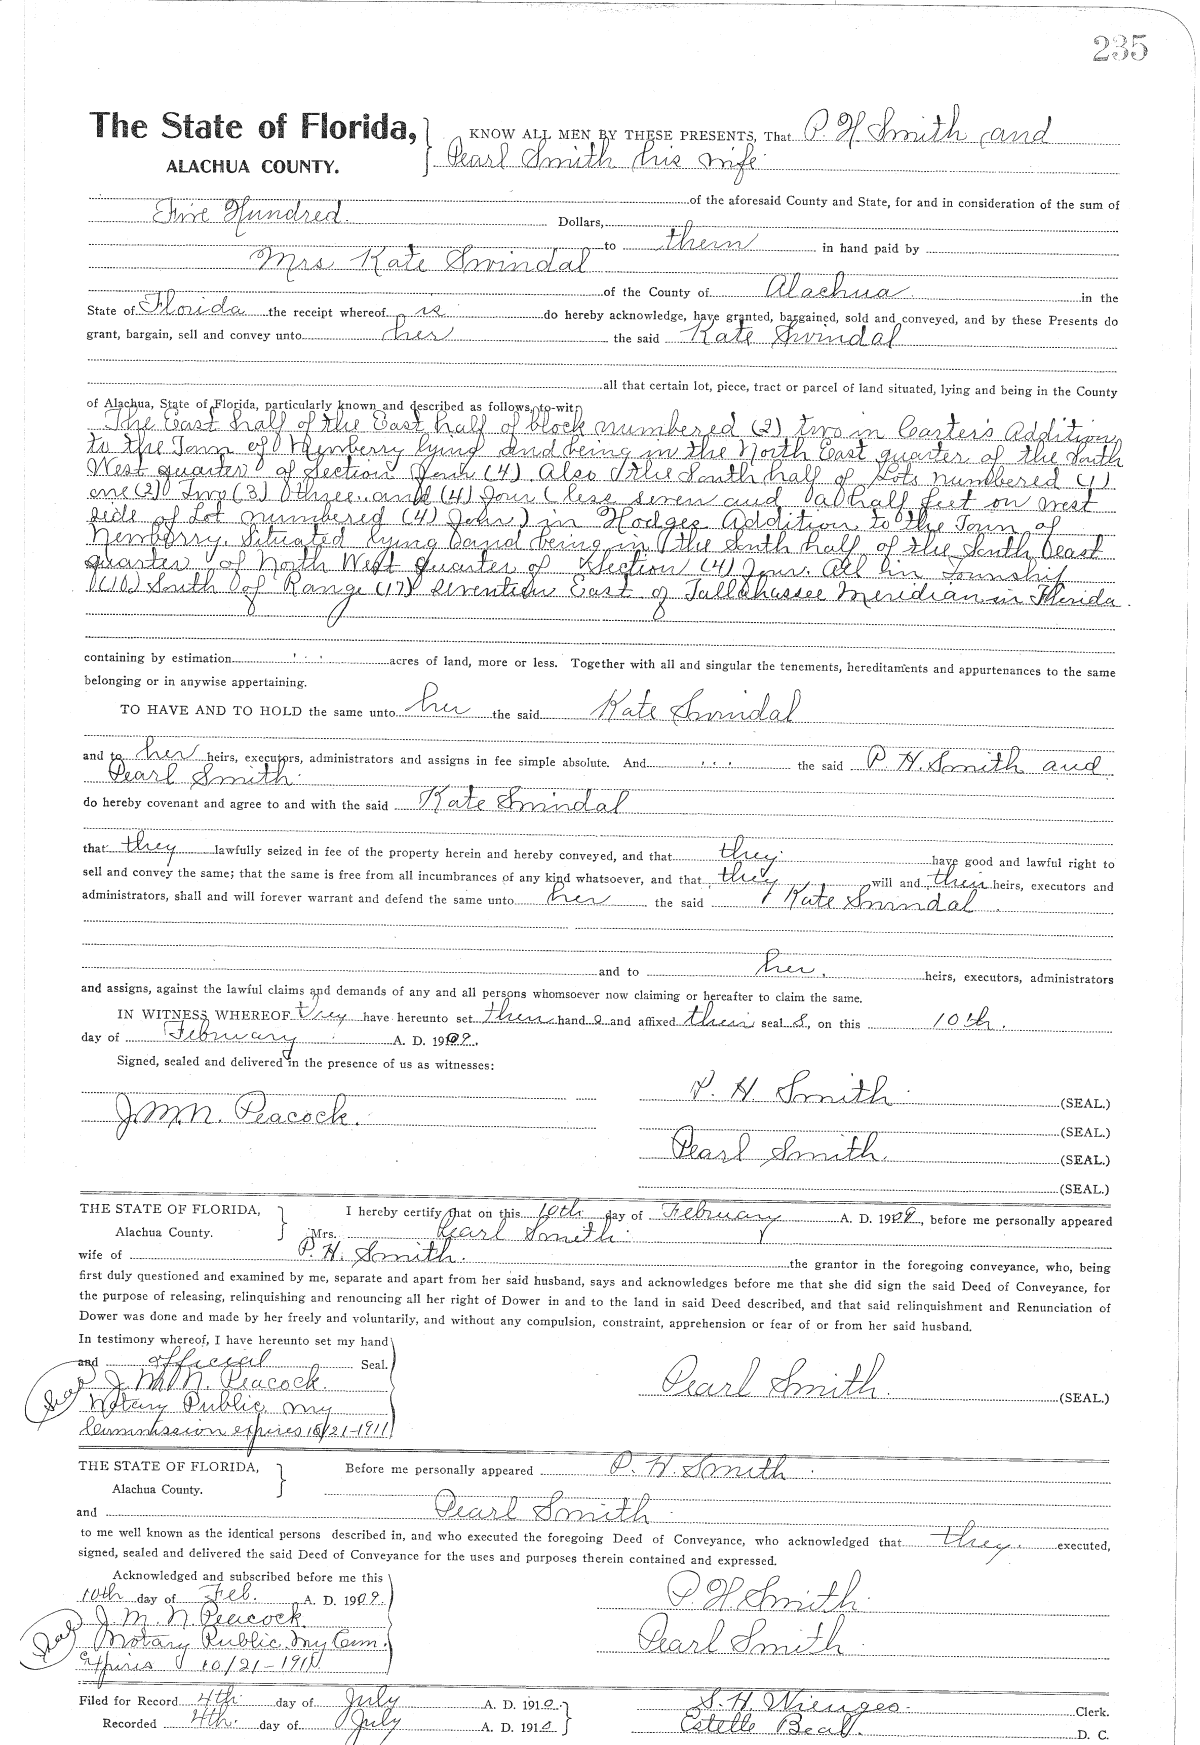 235
The State of Florida,
ALACHUA COUNTY.
KNOW ALL MEN BY THESE PRESENTS, That P. H. Smith and
Pearl Smith his wife
of the aforesaid County and State, for and in consideration of the sum of
Five Hundred Dollars,
to them in hand paid by
Mrs Kate Swindal
of the County of Alachua in the
State of Florida the receipt whereof is do hereby acknowledge, have granted, bargained, sold and conveyed, and by these Presents do
grant, bargain, sell and convey unto her the said Kate Swindal
all that certain lot, piece, tract or parcel of land situated, lying and being in the County
of Alachua, State of Florida, particularly known and described as follows, to-wit:
The East half of the East half of block numbered (2) two in Carter's Addition
to the Town of Newberry lying and being in the North East quarter of the South
West quarter of Section Four (4) Also the South half of Lots numbered (1)
one (2) Two (3) three and (4) four (less seven and a half feet on west
side of Lot numbered (4) four) in Hodges Addition to the Town of
Newberry. Situated lying and being in the South half of the South East
quarter of North West quarter of Section (4) four. All in Township
(10) South of Range (17) Seventeen East of Tallahassee Meridian in Florida.
containing by estimation acres of land, more or less. Together with all and singular the tenements, hereditaments and appurtenances to the same
belonging or in anywise appertaining.
TO HAVE AND TO HOLD the same unto her the said Kate Swindal
and to her heirs, executors, administrators and assigns in fee simple absolute. And the said P. H. Smith and
Pearl Smith
do hereby covenant and agree to and with the said Kate Swindal
that they lawfully seized in fee of the property herein and hereby conveyed, and that they have good and lawful right to
sell and convey the same; that the same is free from all incumbrances of any kind whatsoever, and that they will and their heirs, executors and
administrators, shall and will forever warrant and defend the same unto her the said Kate Swindal
and to her, heirs, executors, administrators
and assigns, against the lawful claims and demands of any and all persons whomsoever now claiming or hereafter to claim the same.
IN WITNESS WHEREOF they have hereunto set their hand s and affixed their seal s, on this 10th.
day of February A. D. 1909.
Signed, sealed and delivered in the presence of us as witnesses:
P. H Smith (SEAL.)
J. M. N. Peacock.
(SEAL.)
Pearl Smith. (SEAL.)
(SEAL.)
THE STATE OF FLORIDA,
Alachua County.
I hereby certify that on this 10th day of February A. D. 1909, before me personally appeared
Mrs. Pearl Smith
wife of P. H. Smith. the grantor in the foregoing conveyance, who, being
first duly questioned and examined by me, separate and apart from her said husband, says and acknowledges before me that she did sign the said Deed of Conveyance, for
the purpose of releasing, relinquishing and renouncing all her right of Dower in and to the land in said Deed described, and that said relinquishment and Renunciation of
Dower was done and made by her freely and voluntarily, and without any compulsion, constraint, apprehension or fear of or from her said husband.
In testimony whereof, I have hereunto set my hand
and official Seal.
Seal
J. M. N. Peacock.
Notary Public, my
Commission expires 10/21-1911
Pearl Smith. (SEAL.)
THE STATE OF FLORIDA,
Alachua County.
Before me personally appeared P. H. Smith
and Pearl Smith
to me well known as the identical persons described in, and who executed the foregoing Deed of Conveyance, who acknowledged that they executed,
signed, sealed and delivered the said Deed of Conveyance for the uses and purposes therein contained and expressed.
Acknowledged and subscribed before me this
10th day of Feb. A. D. 1909.
Seal
J. M. N. Peacock
Notary Public, My Com.
Expires 10/21-1911
P. H Smith
Pearl Smith
Filed for Record 4th day of July A. D. 1910.
Recorded 4th day of July A. D. 1910
S. H. Wienges. Clerk.
Estelle Beal. D. C.